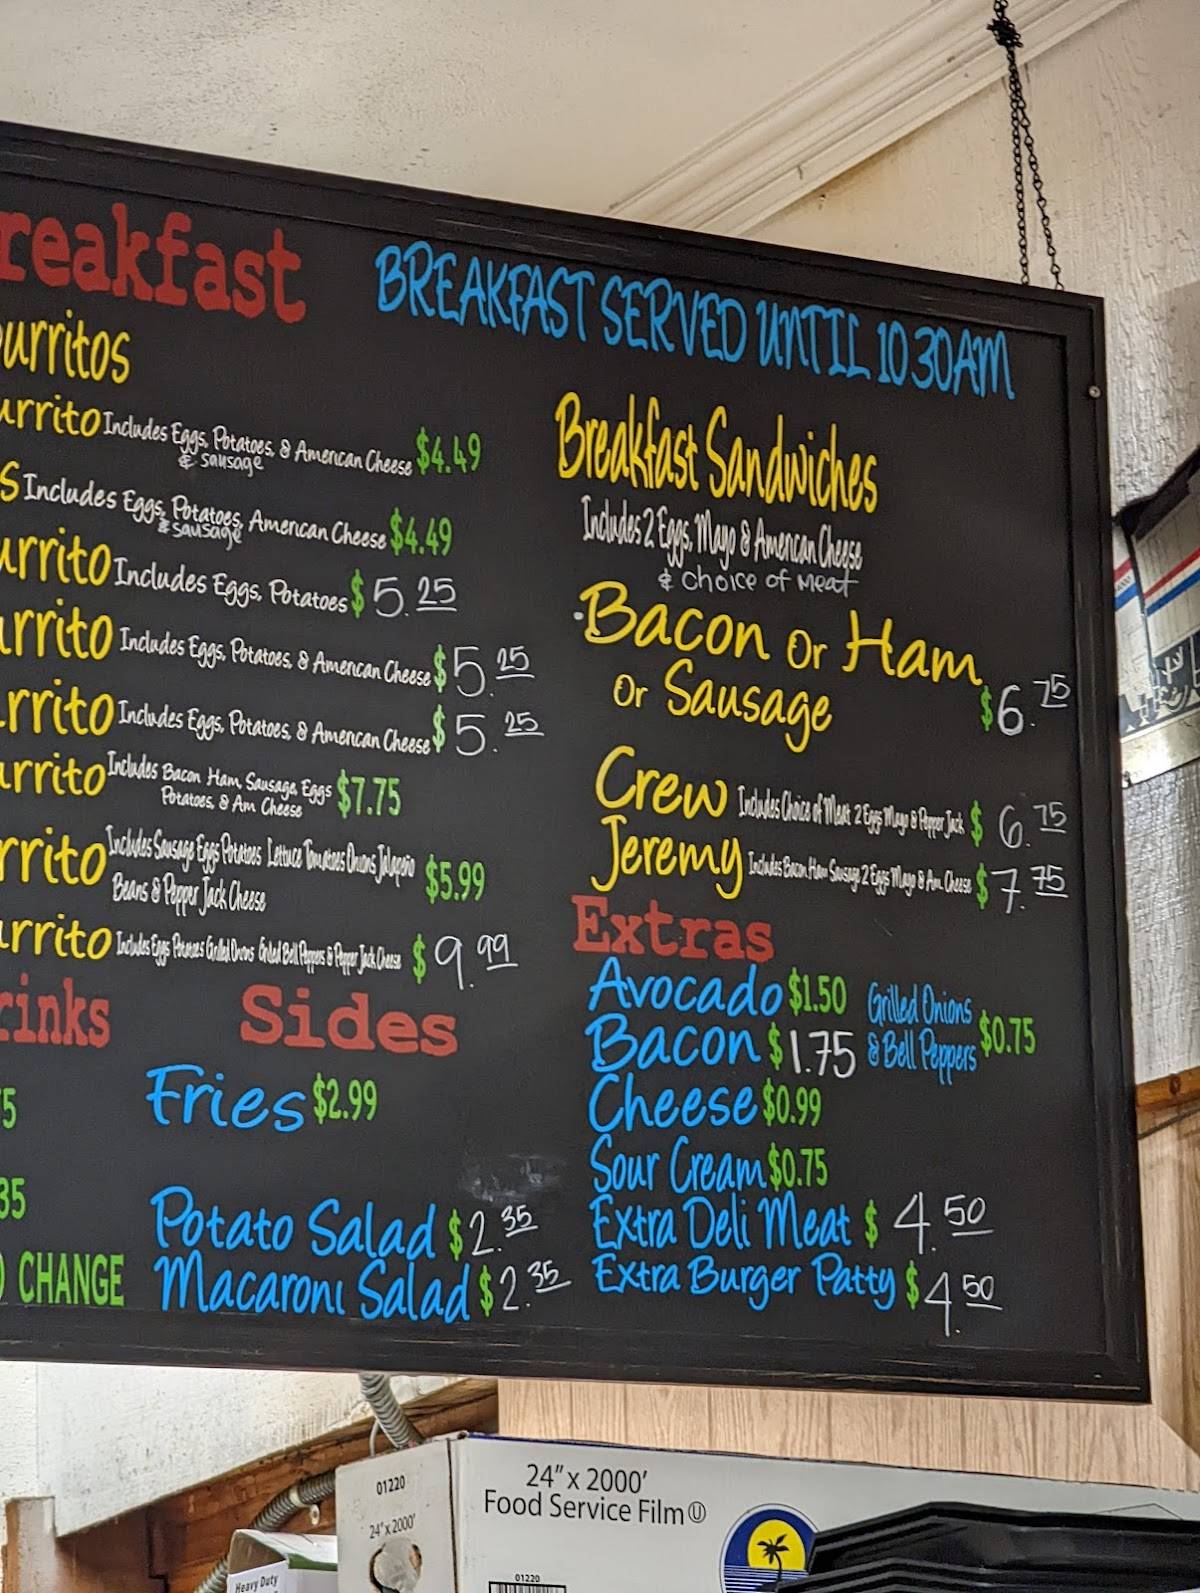 reakfast
BREAKFAST SERVED UNTIL 10 30AM
urritos
urrito Includes Eggs, Potatoes, & American Cheese $4.49
& sausage
s Includes Eggs, Potatoes, American Cheese $4.49
& sausage
urrito Includes Eggs, Potatoes $5.25
urrito Includes Eggs, Potatoes, & American Cheese $5.25
urrito Includes Eggs, Potatoes, & American Cheese $5.25
urrito Includes Bacon Ham, Sausage, Eggs $7.75
Potatoes, & Am Cheese
rrito Includes Sausage Eggs Potatoes Lettuce Tomatoes Onions Jalapeño $5.99
Beans & Pepper Jack Cheese
urrito Includes Eggs Potatoes Grilled Onions Grilled Bell Peppers & Pepper Jack Cheese $9.99
Breakfast Sandwiches
Includes 2 Eggs, Mayo & American Cheese
& choice of meat
Bacon or Ham
or Sausage $6.75
Crew Includes Choice of Meat 2 Eggs Mayo & Pepper Jack $6.75
Jeremy Includes Bacon Ham Sausage 2 Eggs Mayo & Am. Cheese $7.75
rinks
5
35
CHANGE
Sides
Fries $2.99
Potato Salad $2.35
Macaroni Salad $2.35
Extras
Avocado $1.50
Bacon $1.75
Cheese $0.99
Sour Cream $0.75
Extra Deli Meat $4.50
Extra Burger Patty $4.50
Grilled Onions
& Bell Peppers $0.75
01220
24" x 2000'
24" x 2000'
Food Service Film U
01220
Heavy Duty